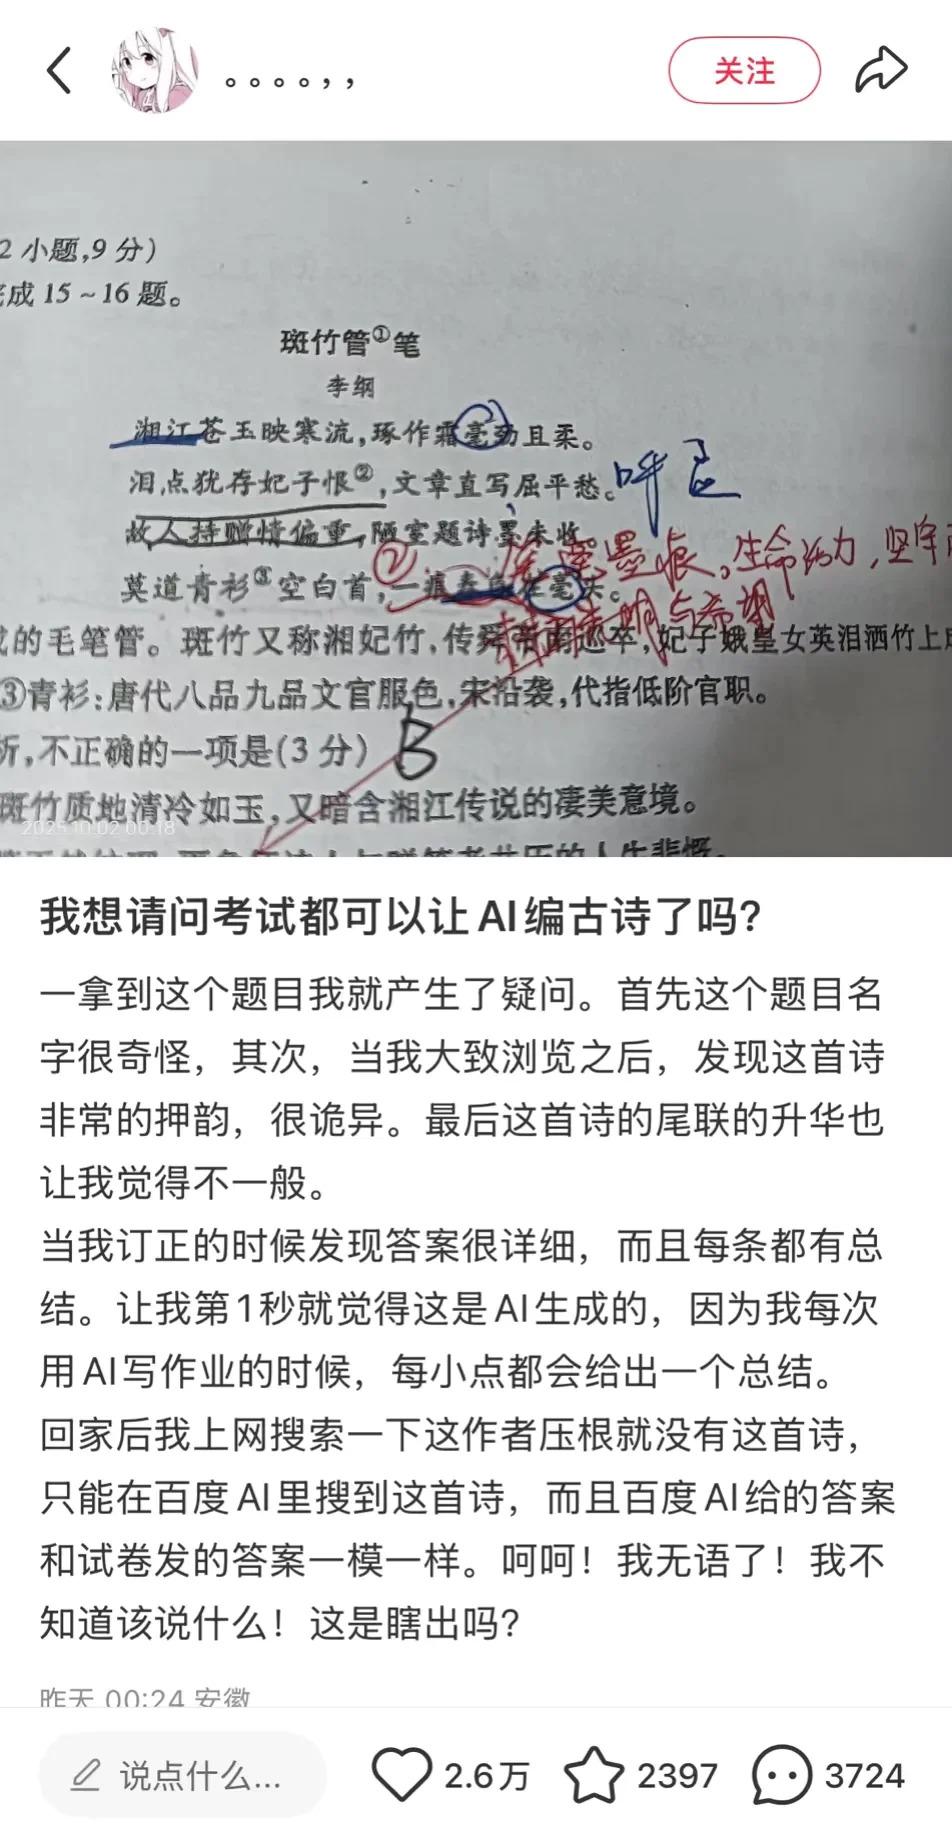 。。。。，，
关注
2 小题,9 分)
完成 15 ~ 16 题。
斑竹管①笔
李纲
湘江苍玉映寒流,琢作霜毫劲且柔。
泪点犹存妃子恨②,文章直写屈平愁。呼应
故人持赠情偏重,陋室题诗墨未收。
墨痕。生命活力,坚守
莫道青衫③空白首,一痕春色在毫头。
②
明与希望
的毛笔管。斑竹又称湘妃竹,传舜帝南巡卒,妃子娥皇女英泪洒竹上
③青衫:唐代八品九品文官服色,宋沿袭,代指低阶官职。
析,不正确的一项是(3 分) B
斑竹质地清冷如玉,又暗含湘江传说的凄美意境。
2025.10.02 00:18
我想请问考试都可以让AI编古诗了吗?
一拿到这个题目我就产生了疑问。首先这个题目名
字很奇怪，其次，当我大致浏览之后，发现这首诗
非常的押韵，很诡异。最后这首诗的尾联的升华也
让我觉得不一般。
当我订正的时候发现答案很详细，而且每条都有总
结。让我第1秒就觉得这是AI生成的，因为我每次
用AI写作业的时候，每小点都会给出一个总结。
回家后我上网搜索一下这作者压根就没有这首诗，
只能在百度AI里搜到这首诗，而且百度AI给的答案
和试卷发的答案一模一样。呵呵！我无语了！我不
知道该说什么！这是瞎出吗?
昨天 00:24 安徽
说点什么...
2.6万
2397
3724